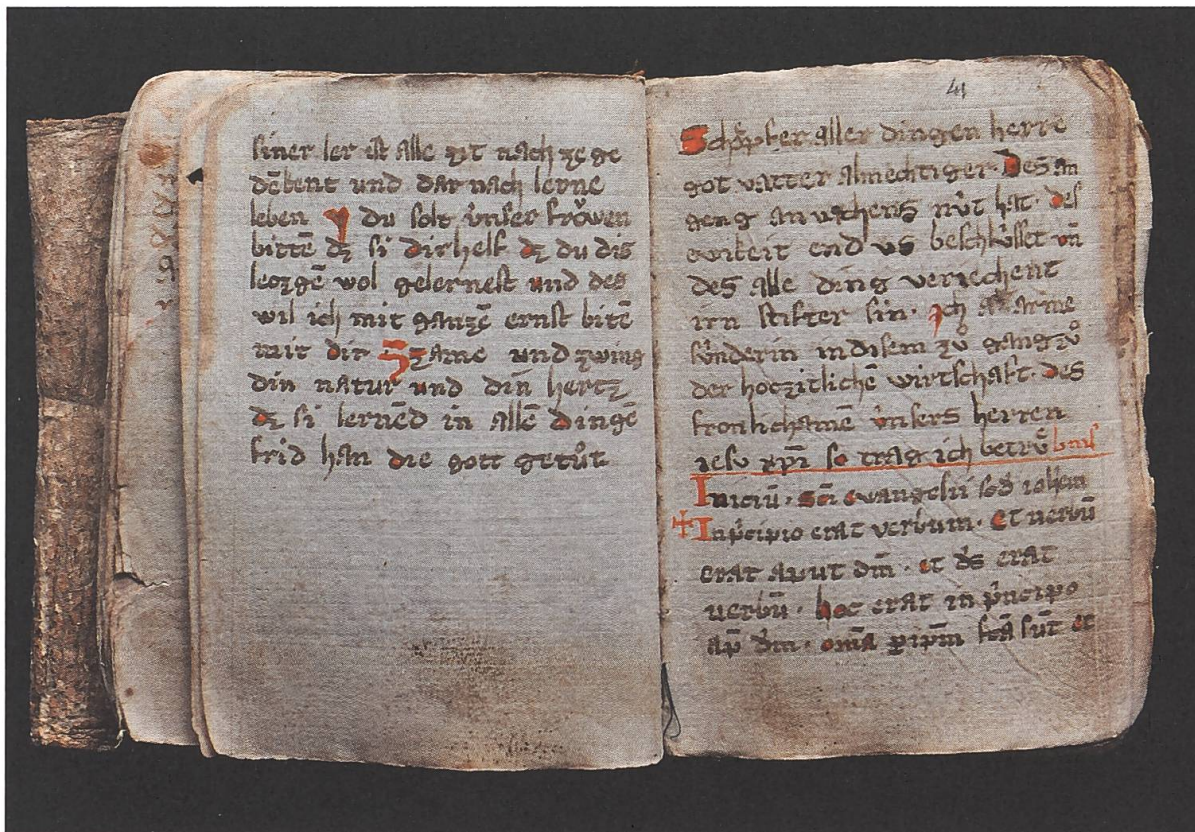 siner ler ist alle zit nach ze ge
dēkent und dar nach lerne
leben du solt v̊nser frǒwen
bittē dz si dir helf dz du dis
leczgē wol gelernest und des
wil ich mit ganzē ernst bitē
mit dir Zzame und zwing
din natur und din hertz
dz si lernēd in allē dingē
frid han die gott getu̍t
41
Schöpfer aller dingen herre
got vatter almechtiger. Des an
geng anvachens nv̍t hat. des
ewikeit end vs beschlv̍sset vn̄
des alle ding veriechent
irn stifter sin. Ich arme
sv̍nderin in disem zů gang zů
der hoczitlichē wirtschaft. des
fronlichamē v̍nsers herren
iesu xp̄i so trag ich betru̍bnis
Iniciū. sc̄i ewangelii scd̄ iohem
+ In p̍cipio erat verbum. et verbū
erat aput dm̄. et ds̄ erat
uerbū. hoc erat in p̍ncipo
ap̄ dm̄. om̄a p ip̄m fc̄a sūt et